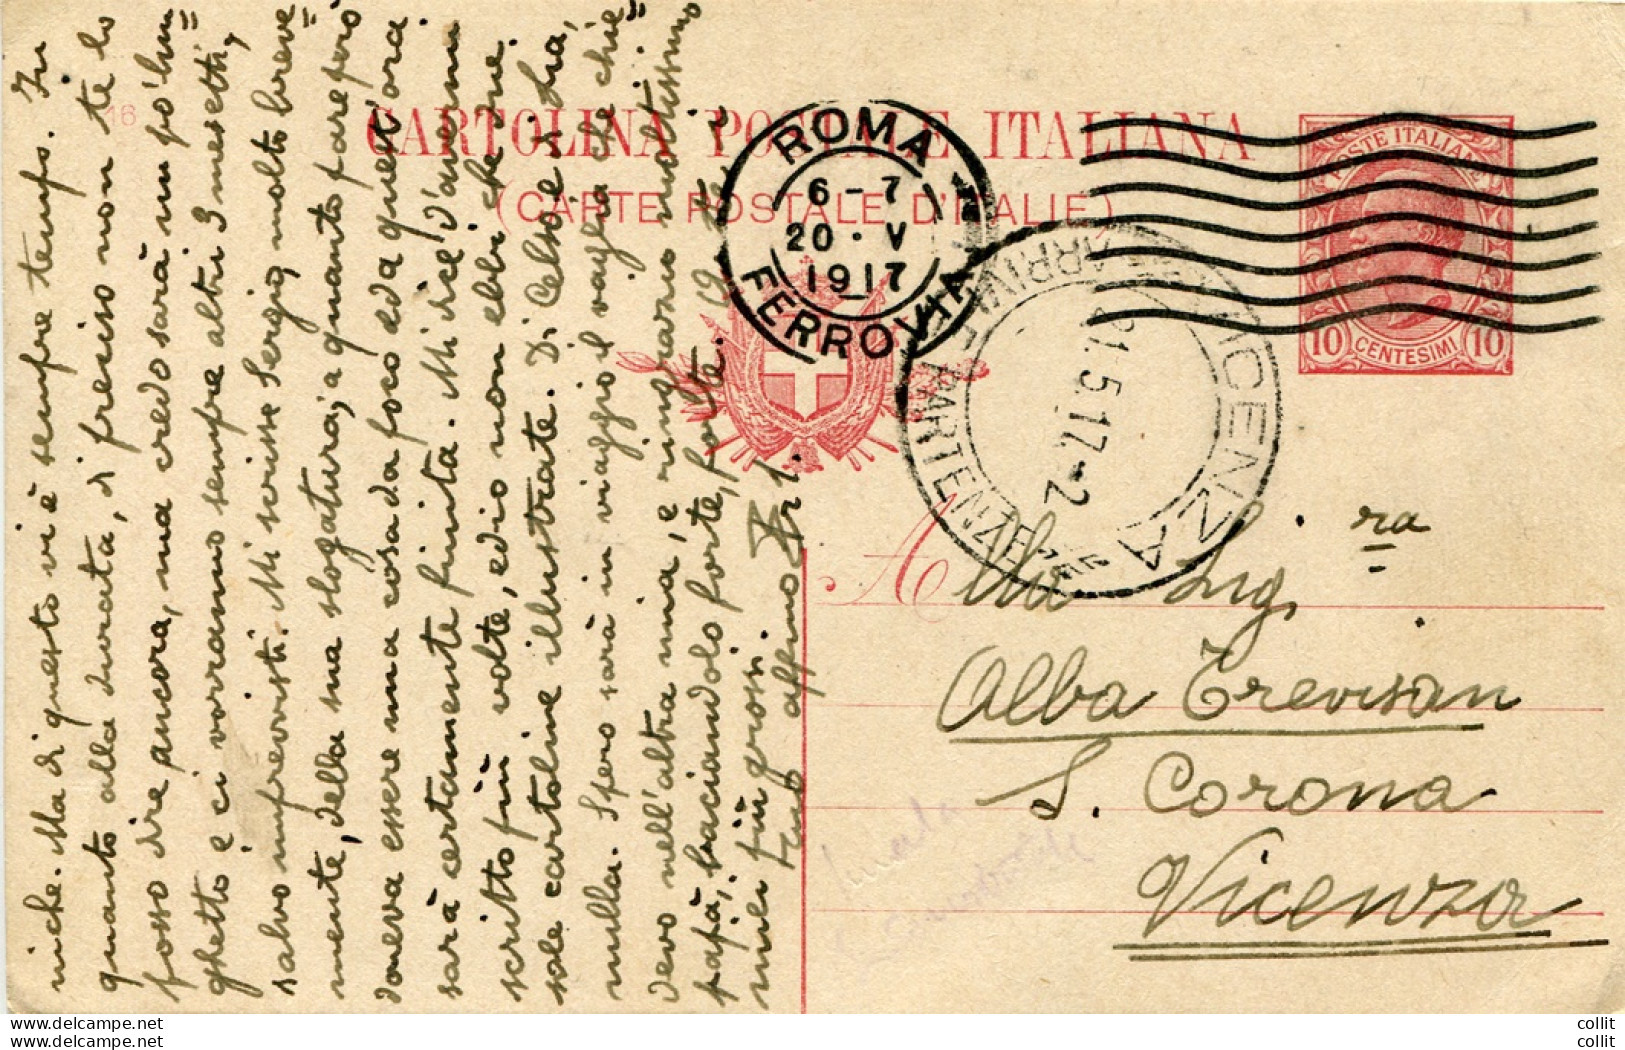 niche. Ma di questo vi è sempre tempo. In
quanto alla durata, di preciso non te lo
posso dire ancora, ma credo sarà un po' lun=
ghetto e ci vorranno sempre altri 3 mesetti,
salvo imprevisti. Mi scrisse Sergio, molto breve=
mente, della sua slogatura; a quanto pare però
doveva essere una cosa da poco ed a quest'ora
sarà certamente finita. Mi dice d'avermi
scritto più volte, ed io non ebbi che due
sole cartoline illustrate. Di Celso e Lia,
nulla. Spero sarà in viaggio il vaglia che chie=
devo nell'altra mia, e ringrazio moltissimo
papà, baciandolo forte, forte.
mili più grossi.
Tuo affmo
16
CARTOLINA POSTALE ITALIANA
(CARTE POSTALE D'ITALIE)
ROMA
6-7
20·V
1917
FERROVIA
POSTE ITALIANE
10 CENTESIMI 10
VICENZA
ARRIVI E PARTENZE
21.5.17.-2
Alla Sig.ra
Alba Trevisan
S. Corona
Vicenza
www.delcampe.net
www.delcampe.net
collit
collit